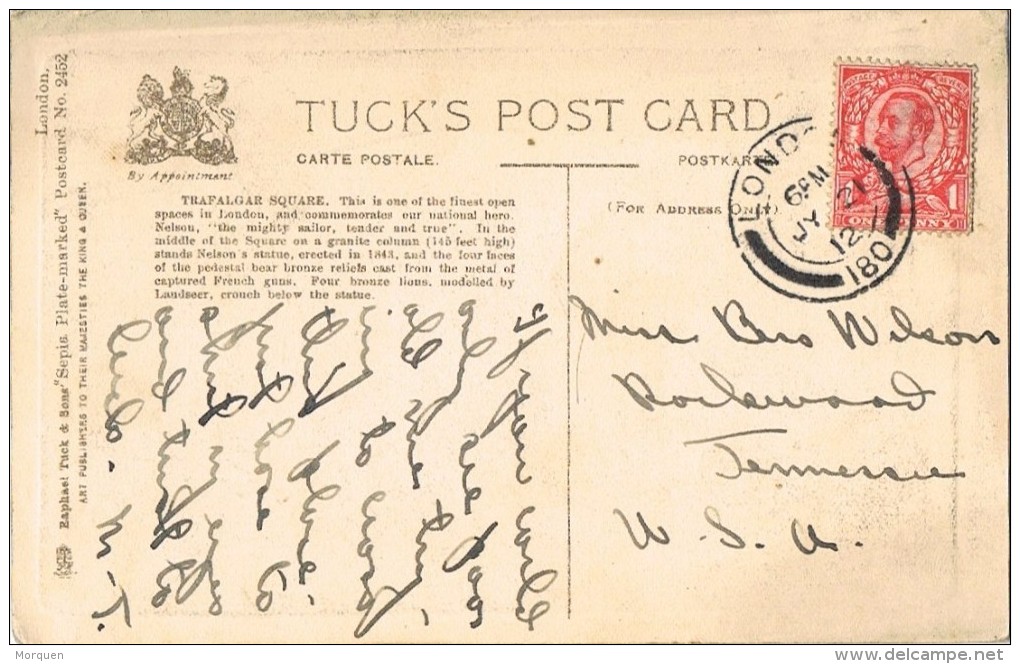 TUCK'S POST CARD
CARTE POSTALE.
POSTKARTE
By Appointment
(FOR ADDRESS ONLY)
TRAFALGAR SQUARE. This is one of the finest open
spaces in London, and commemorates our national hero.
Nelson, "the mighty sailor, tender and true". In the
middle of the Square on a granite column (145 feet high)
stands Nelson's statue, erected in 1843, and the four faces
of the pedestal bear bronze reliefs cast from the metal of
captured French guns. Four bronze lions, modelled by
Landseer, crouch below the statue.
London.
Raphael Tuck & Sons' "Sepia Plate-marked" Postcard No. 2452
ART PUBLISHERS TO THEIR MAJESTIES THE KING & QUEEN.
POSTAGE REVENUE
1
ONE PENNY
LOND
6 PM
JY 21
12
180
Miss Bess Wilson
Rockwood
Tennessee
U. S. A.
If you could
only see
all the
in
this place
just have to
shut my eyes
and
M. T.
Morquen
www.delcampe.net